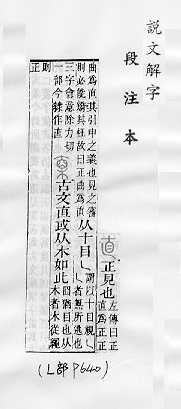 説文解字
段注本
直 正見也 左傳曰正
直爲正正
曲爲直其引申之義也見之審
則必能矯其枉故曰正曲爲直
从十目乚
謂以十目視乚
乚者無所逃也
三字會意除力切
一部今隸作直
古文直或从木如此
囧猶目也从
木者木從繩
則
正
(乚部 P640)